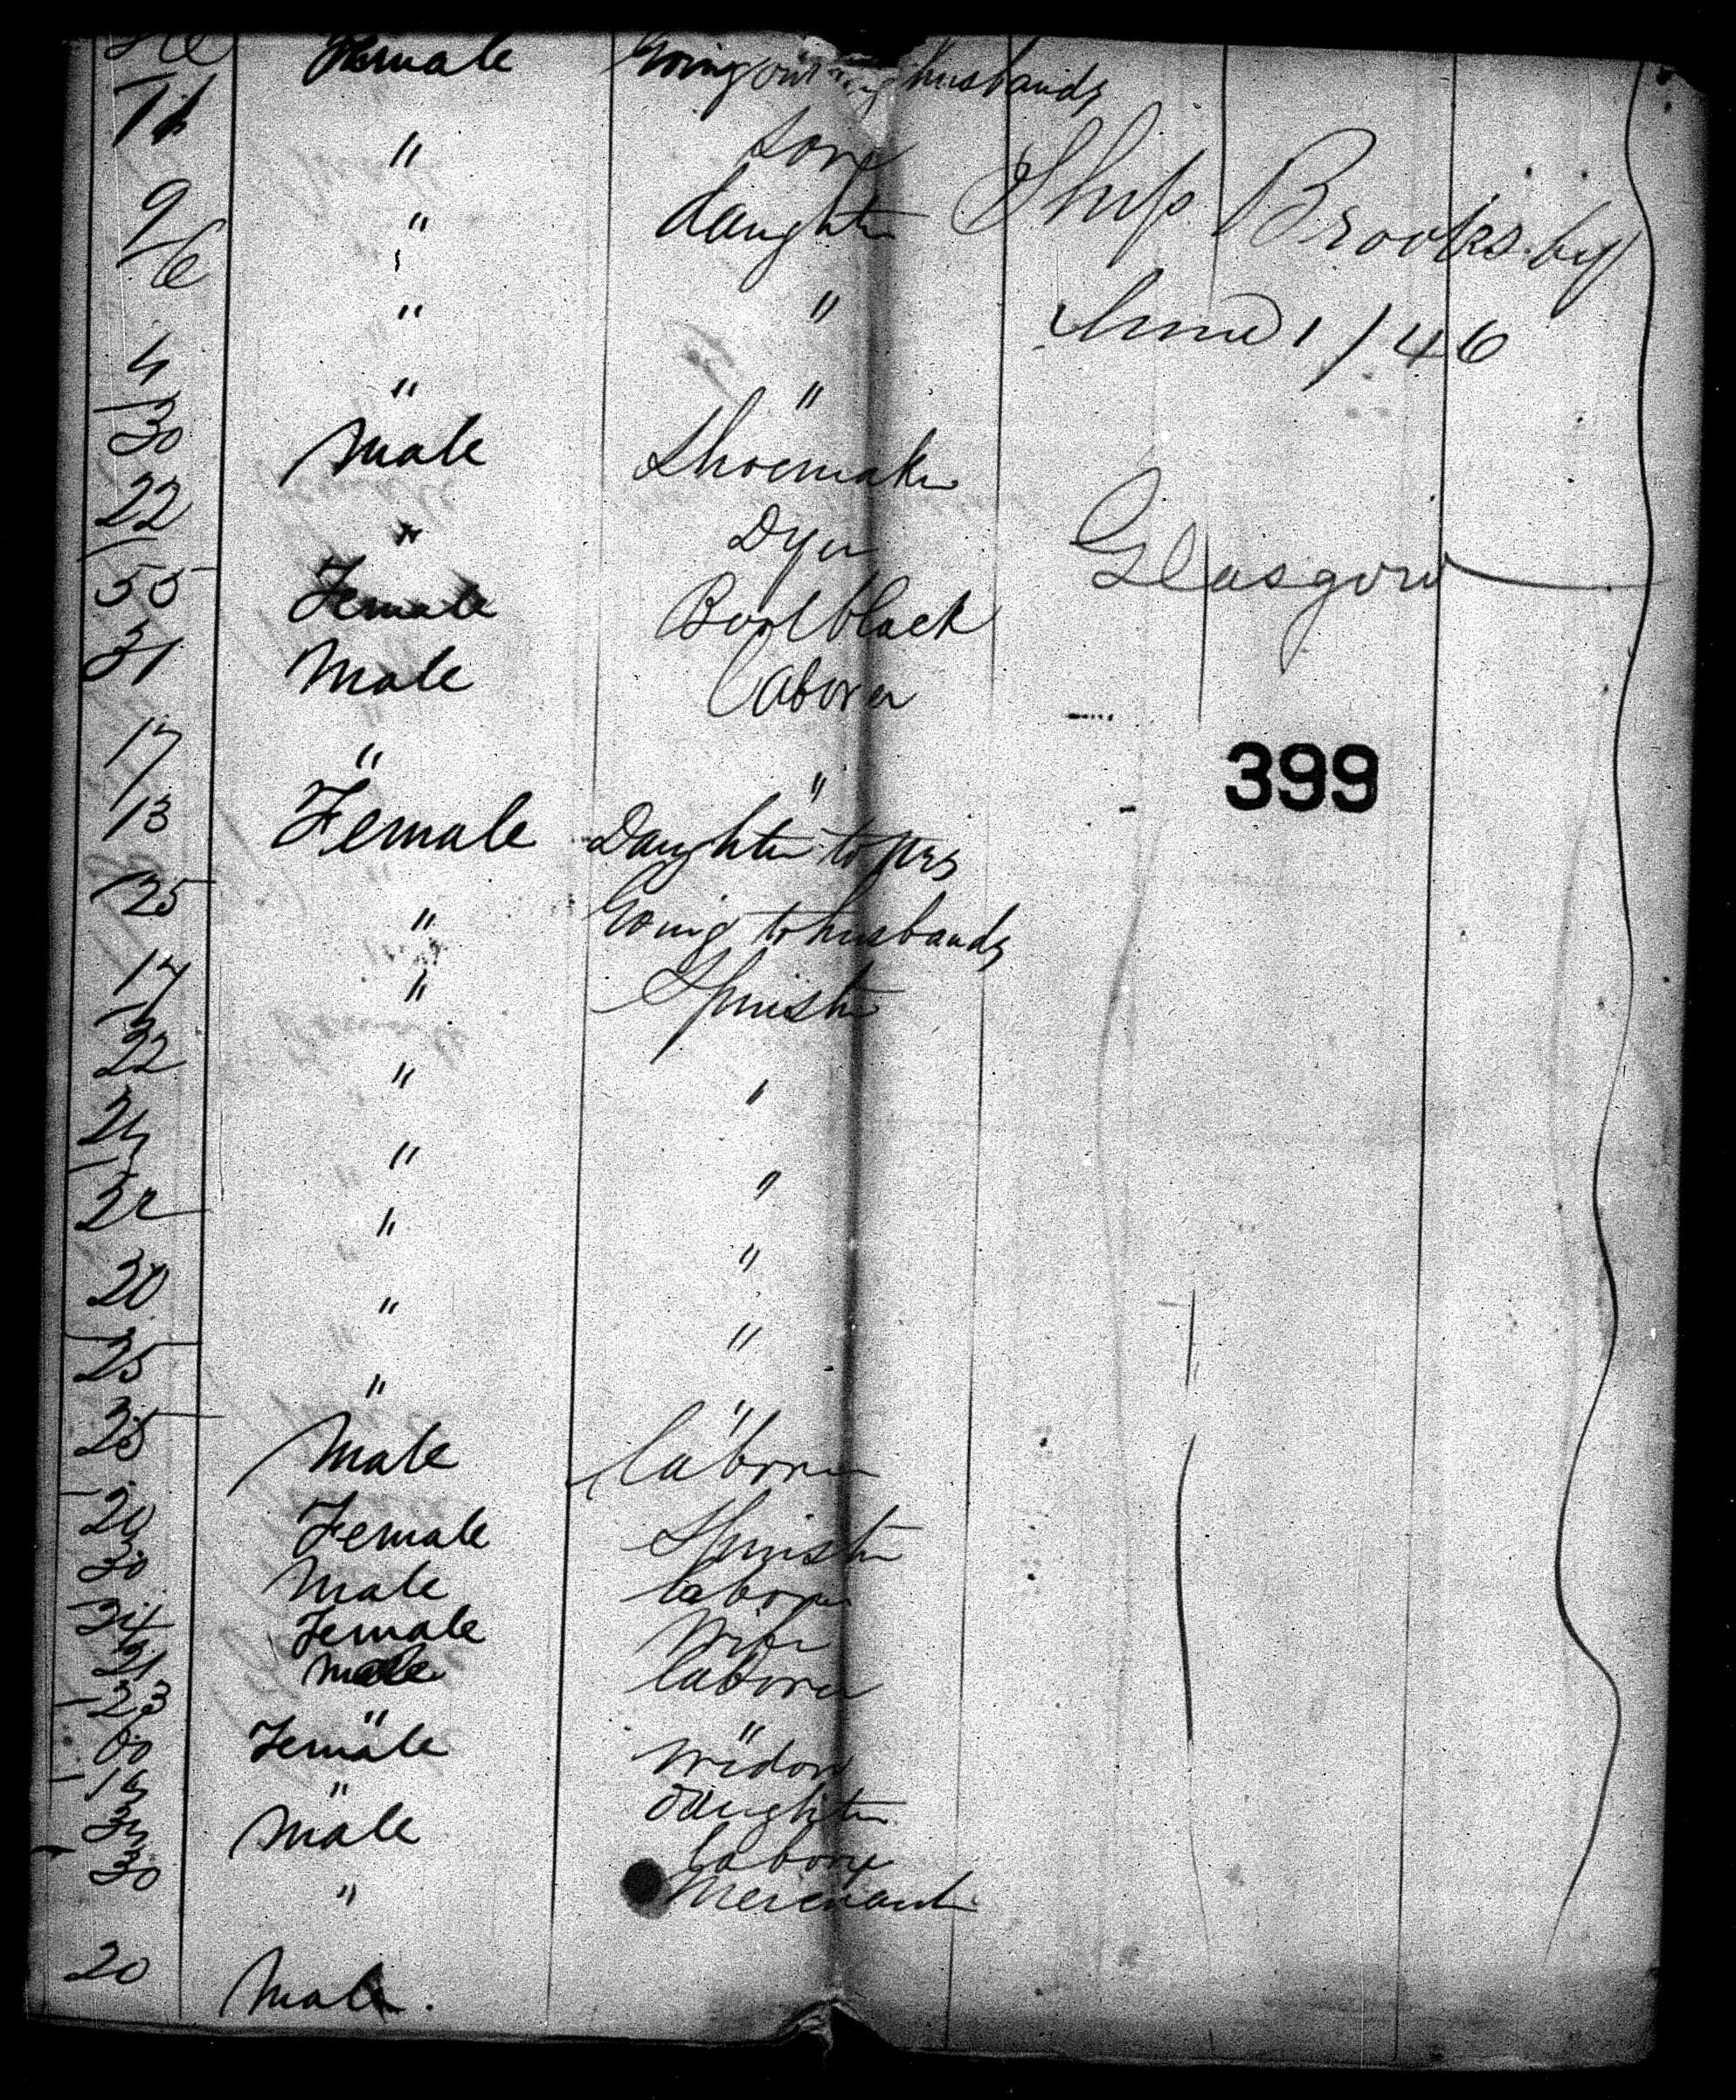 Female Going out to husbands
11 " Sons
9 " daughter
6 " "
4 " "
30 Male Shoemaker
22 " Dyer
55 Female Bootblack
31 Male Laborer
17 " "
13 Female Daughter to
25 " Going to husbands
17 " Spinster
22 " "
" "
22 " "
20 " "
25 " "
25 Male laborer
20 Female Spinster
30 Male laborer
34 Female Wife
21 male laborer
23 " "
Female widow
" daughter
Male labore
30 " Merchant
20 Male.
Ship Brooksby
June 1/46
Glasgow
399